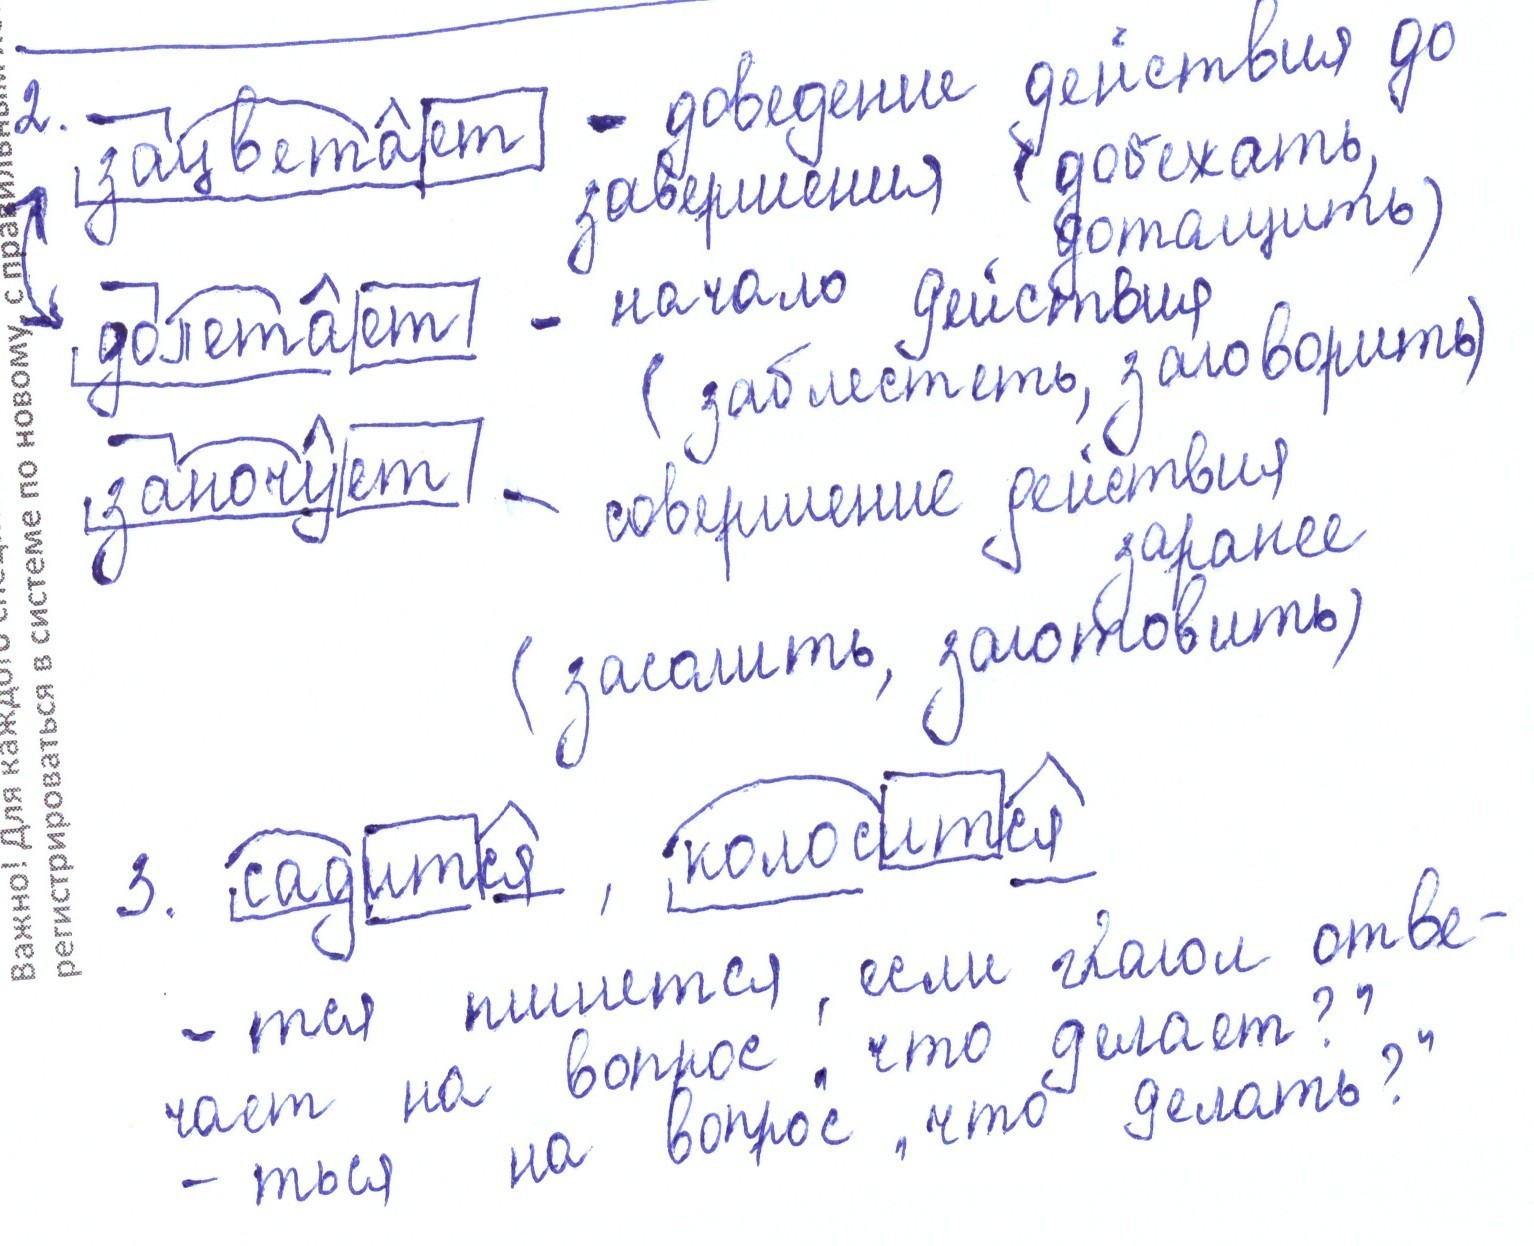 2. зацветает - доведение действия до
завершения (добежать,
дотащить)
долетает - начало действия
(заблестеть, заговорить)
заночует - совершение действия
заранее
(засолить, заготовить)
3. садится, колосится
- тся пишется, если глагол отве-
чает на вопрос „что делает?"
- ться на вопрос „что делать?"
Важно! Для каждого
регистрироваться в системе по новому, с правильными